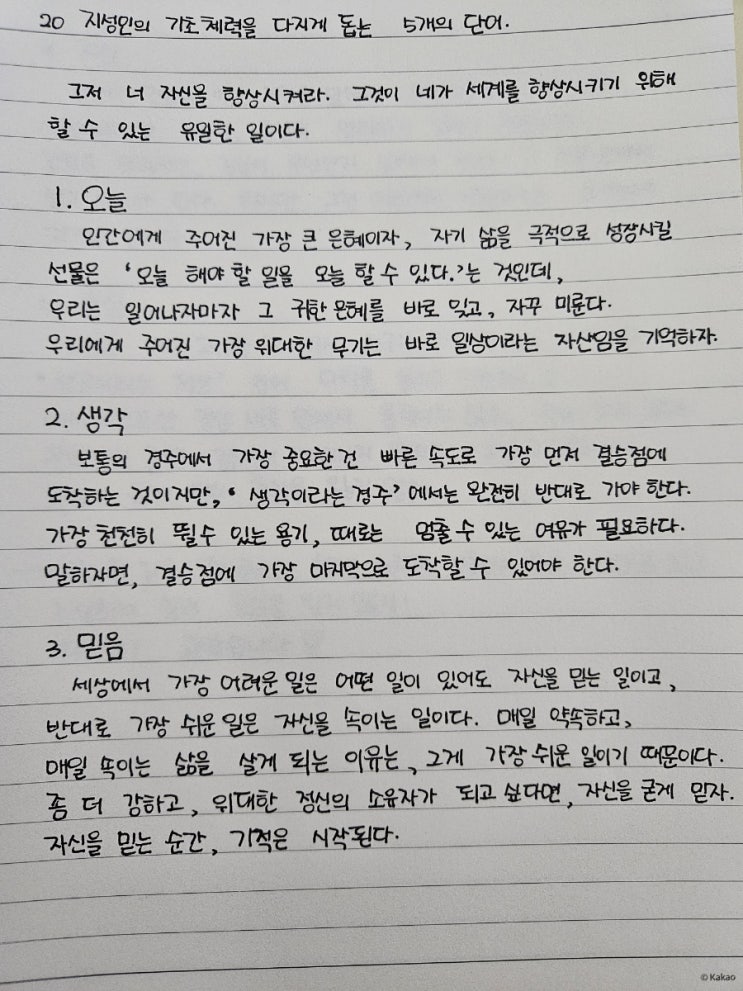 20 지성인의 기초체력을 다지게 돕는 5개의 단어.
그저 너 자신을 향상시켜라. 그것이 네가 세계를 향상시키기 위해
할 수 있는 유일한 일이다.
1. 오늘
인간에게 주어진 가장 큰 은혜이자, 자기 삶을 극적으로 성장시킬
선물은 '오늘 해야 할 일을 오늘 할 수 있다.'는 것인데,
우리는 일어나자마자 그 귀한 은혜를 바로 잊고, 자꾸 미룬다.
우리에게 주어진 가장 위대한 무기는 바로 일상이라는 자산임을 기억하자.
2. 생각
보통의 경주에서 가장 중요한 건 빠른 속도로 가장 먼저 결승점에
도착하는 것이지만, '생각이라는 경주'에서는 완전히 반대로 가야 한다.
가장 천천히 뛸 수 있는 용기, 때로는 멈출 수 있는 여유가 필요하다.
말하자면, 결승점에 가장 마지막으로 도착할 수 있어야 한다.
3. 믿음
세상에서 가장 어려운 일은 어떤 일이 있어도 자신을 믿는 일이고,
반대로 가장 쉬운 일은 자신을 속이는 일이다. 매일 약속하고,
매일 속이는 삶을 살게 되는 이유는, 그게 가장 쉬운 일이기 때문이다.
좀 더 강하고, 위대한 정신의 소유자가 되고 싶다면, 자신을 굳게 믿자.
자신을 믿는 순간, 기적은 시작된다.
© Kakao